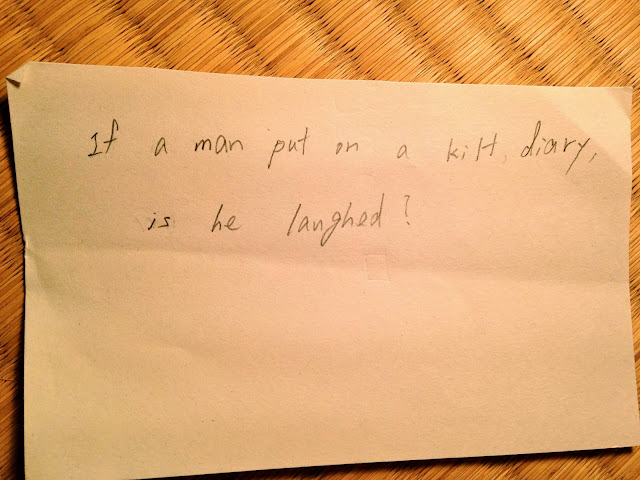 If a man put on a kilt, diary,
is he laughed?